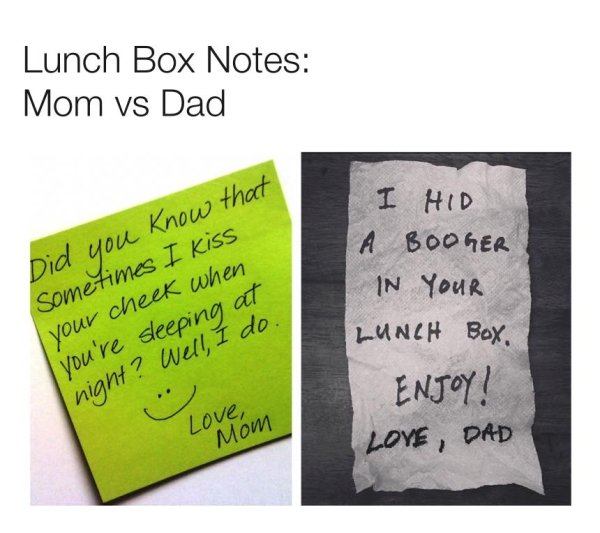 Lunch Box Notes:
Mom vs Dad
Did you Know that
Sometimes I Kiss
your cheek when
you're sleeping at
night? Well, I do.
Love,
Mom
I HID
A BOOGER
IN YOUR
LUNCH BOX.
ENJOY!
LOVE, DAD